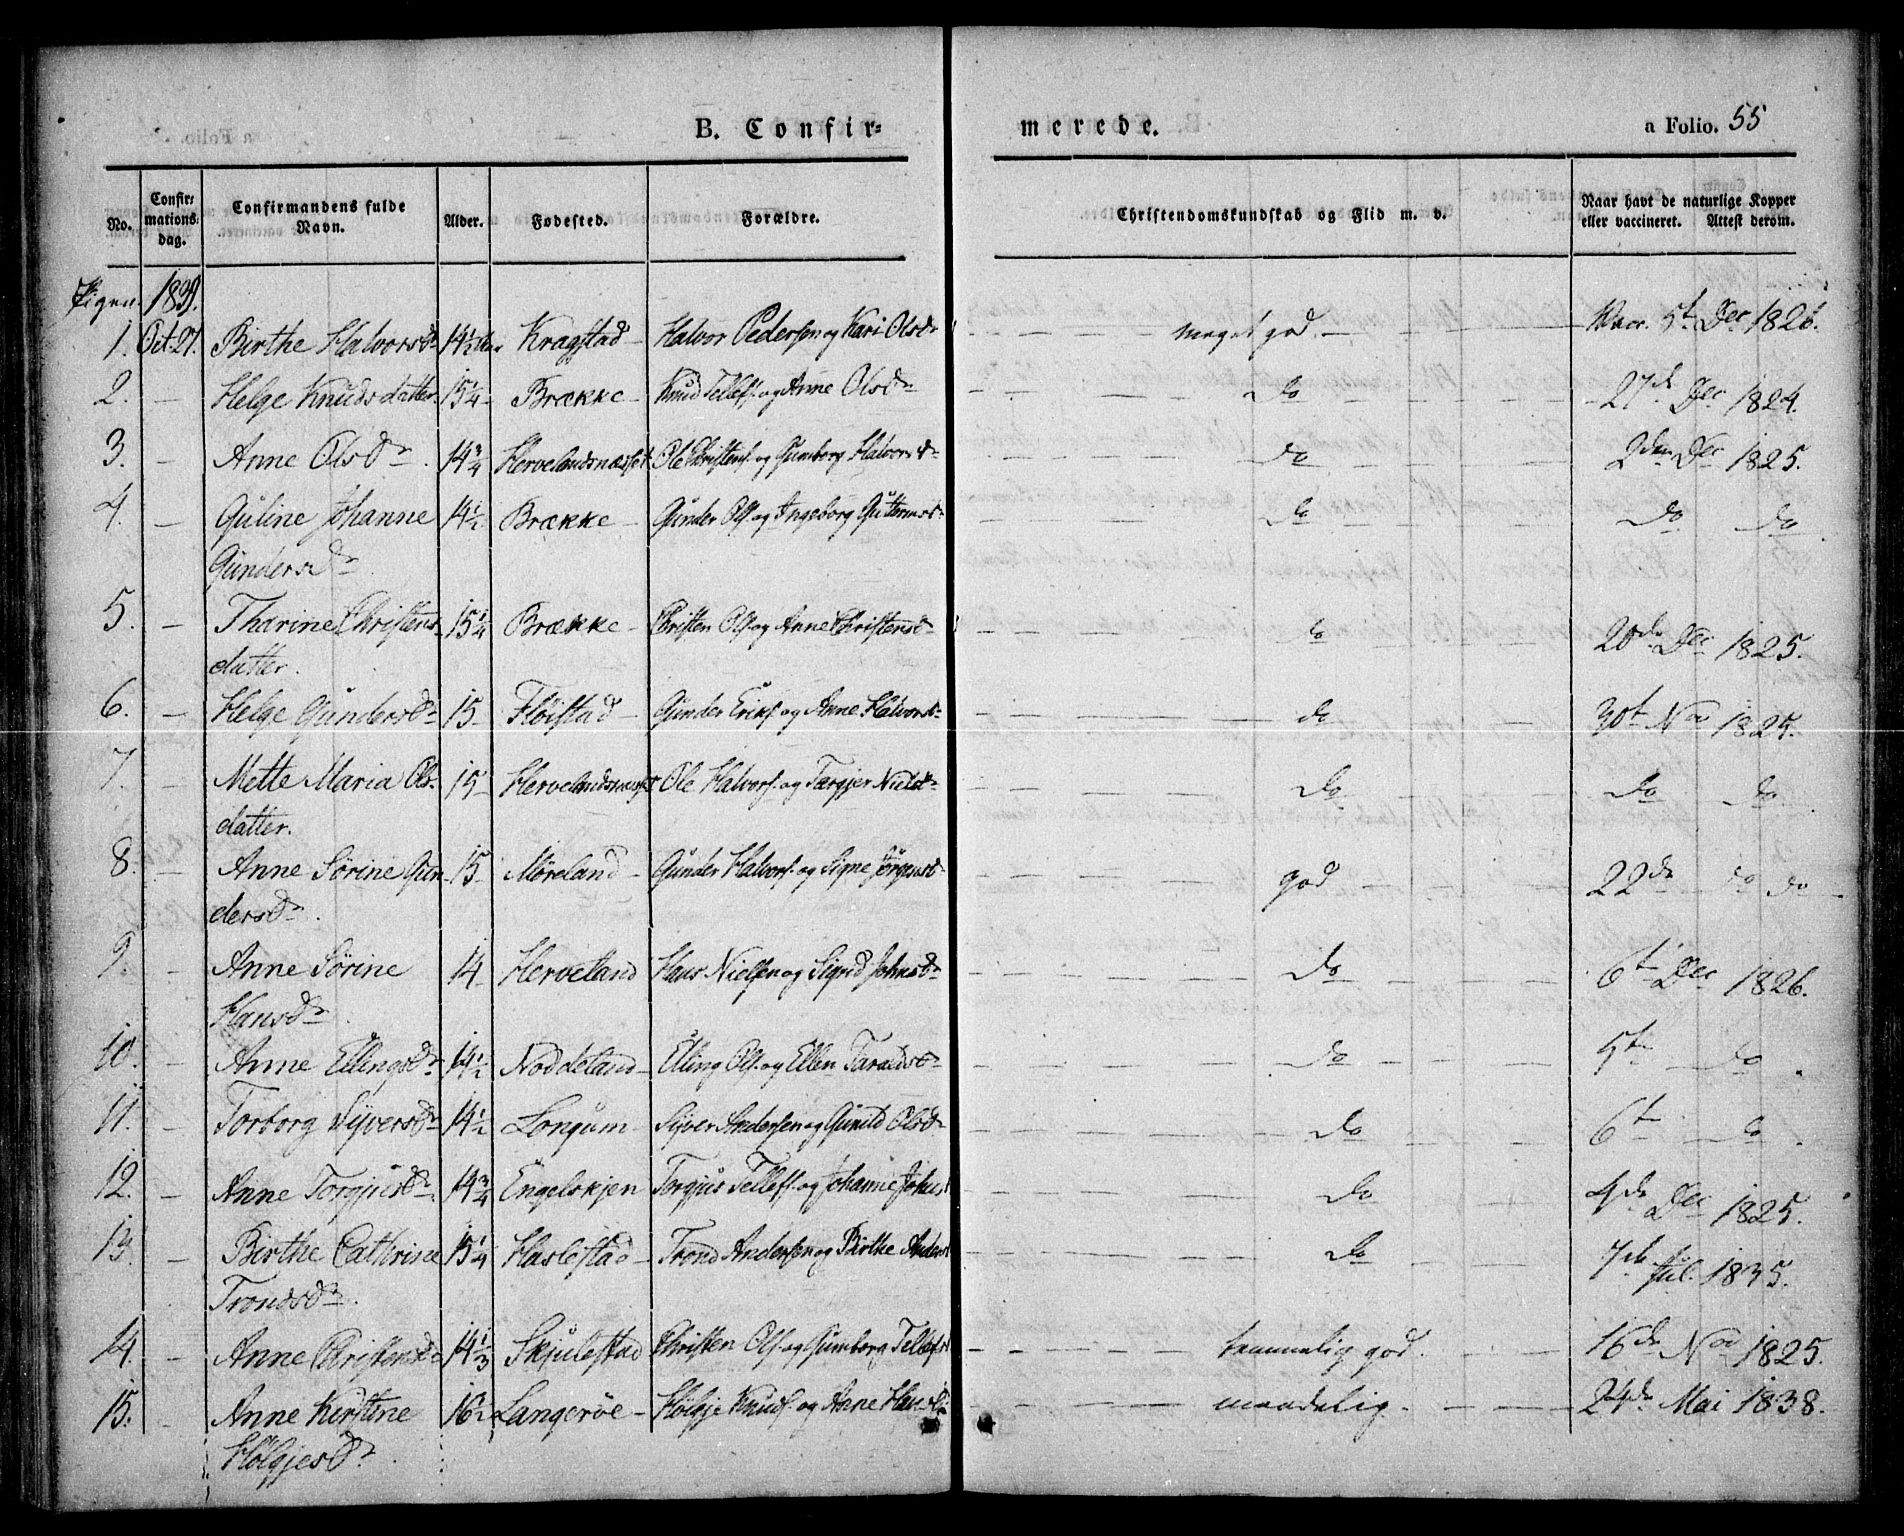 B. Confir= merede. a Folio. 55
No. Confir=mations=dag. Confirmandens fulde Navn. Alder. Fødested. Forældre. Christendomskundskab og Flid m. v. Naar havt de naturlige Kopper eller vaccineret. Attest derom.
Pigen. 1839.
1. Oct. 27. Birthe Halvorsdr 14½ Aar Kragstad Halvor Pedersen og Kari Olsdr — — — meget god. — Vacc. 5t Dec 1826.
2. — Helge Knudsdatter 15¼ Brække Knud Tellefs. og Anne Olsdr — — — do — — 27de Dec 1824.
3. — Anne Olsdr 14¾ Hervelandsnæsset Ole Christens. og Gumborg Halvorsdr — — — do — — 2den Dec 1825.
4. — Guline Johanne 14½ Brække Gunder Ols. og Ingeborg Guttormsd — — — do — — do do
Gundersdr
5. — Tharine Christens 15¼ Brække Christen Ols. og Anne Christensd — — — do — — 20de Dec 1825.
datter.
6. — Helge Gundersdr 15 Fløistad Gunder Eriks. og Anne Halvorsd — — — do — — 30t Nov 1825.
7. — Mette Maria Ols- 15 Hervelandsnæsset Ole Halvors. og Targjer Nielsd — — — do — — do do
datter.
8. — Anne Sørine Gun 15 Møreland Gunder Halvors. og Signe Jørgensd — — — god — — 22de do do
dersdr.
9. — Anne Sørine 14 Herveland Hans Nielsen og Sigrid Johnsdr — — — do — — 6t Dec 1826.
Hansdr
10. — Anne Ellingsdr 14½ Noddeland Elling Ols. og Ellen Taraldsd — — — do — — 5te do
11. — Torborg Syversdr 14½ Longum Syver Andersen og Gunild Olsdr — — — do — — 6t do
12. — Anne Torgjusdr 14¾ Engelskjen Torgjus Tellefs. og Johanne Johnsd — — — do — — 4de Dec 1825.
13. — Birthe Cathrine 15¼ Haslestad Trond Andersen og Birthe Andersd — — — do — — 7de Jul. 1835.
Trondsdr.
14. — Anne Christensd 14⅓ Skjulestad Christen Ols. og Gumborg Tellefsd — — — temmelig god. — 16de Nov 1825.
15. — Anne Kirstine 16½ Langerøe Hølgje Knuds. og Anne Hansd — — — maadelig. — — 24de Mai 1838.
Hølgjesdr.